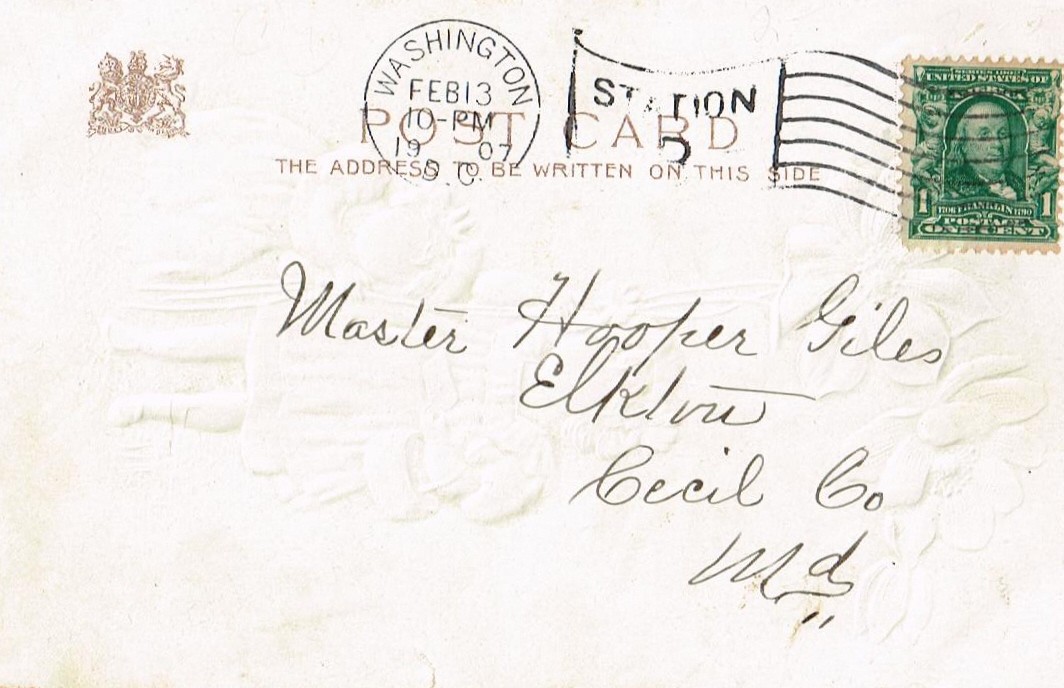 WASHINGTON
FEB 13
10-PM
1907
D.C.
STATION
POST CARD
THE ADDRESS TO BE WRITTEN ON THIS SIDE
SERIES 1902
UNITED STATES OF
AMERICA
1706 FRANKLIN 1790
1 1
POSTAGE
ONE CENT
Master Hooper Giles
Elkton
Cecil Co
Md